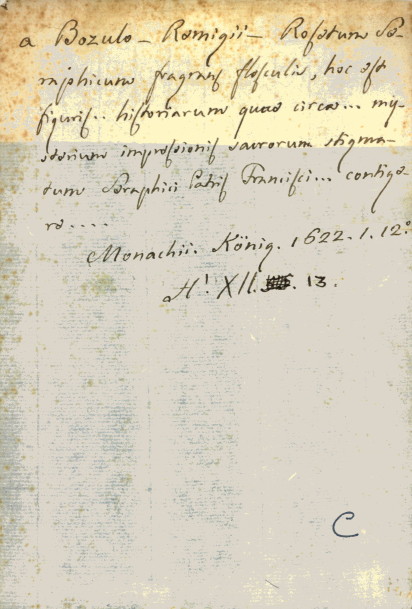 a Bozulo – Remigii – Rosetum Se-
raphicum fragrans flosculis, hoc est
figuris.. historiarum quae circa... my-
sterium impressionis sacrorum stigma-
tum Seraphici Patris Francisci... contige-
re.....
Monachii. König. 1622. 1. 12°
H! XII. 13.
C